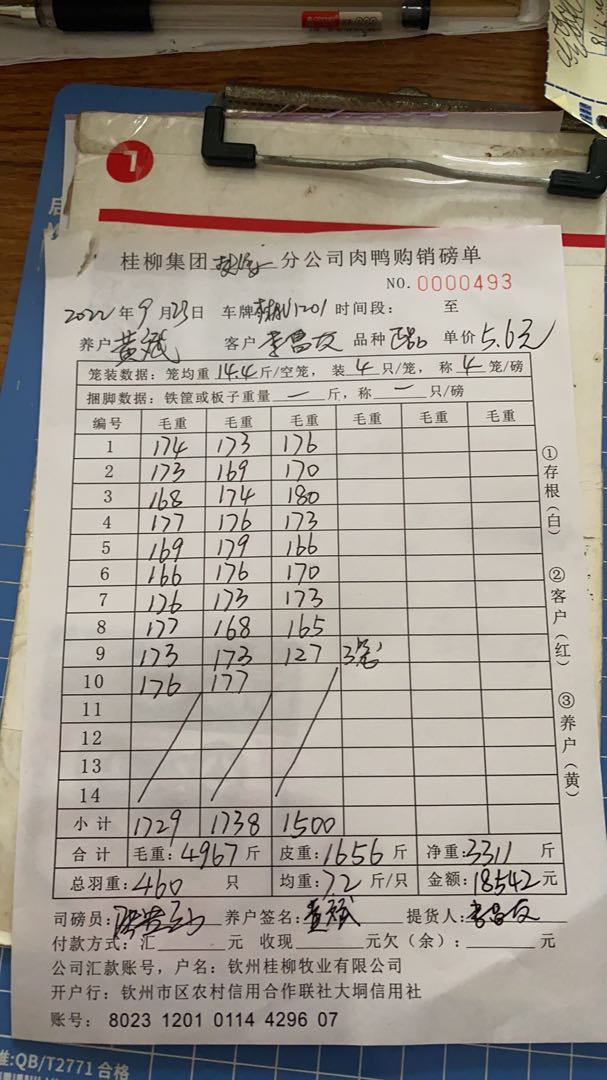 桂柳集团 分公司肉鸭购销磅单
NO. 0000493
2022年9月23日 车牌 1201 时间段: 至
养户 黄斌 客户 李昌友 品种 单价 5.6元
笼装数据: 笼均重 14.4 斤/空笼, 装 4 只/笼, 称 4 笼/磅
捆脚数据: 铁筐或板子重量 一 斤, 称 一 只/磅
编号 毛重 毛重 毛重 毛重 毛重 毛重
1 174 173 176
2 173 169 170
3 168 174 180
4 177 176 173
5 169 179 166
6 166 176 170
7 176 173 173
8 177 168 165
9 173 173 127 3笼
10 176 177
11
12
13
14
小计 1729 1738 1500
合计 毛重: 4967 斤 皮重: 1656 斤 净重: 3311 斤
总羽重: 460 只 均重: 7.2 斤/只 金额: 18542 元
司磅员: 养户签名: 黄斌 提货人: 李昌友
付款方式: 汇 元 收现 元欠(余): 元
公司汇款账号, 户名: 钦州桂柳牧业有限公司
开户行: 钦州市区农村信用合作联社大垌信用社
账号: 8023 1201 0114 4296 07
①存根(白)
②客户(红)
③养户(黄)
准:QB/T2771 合格